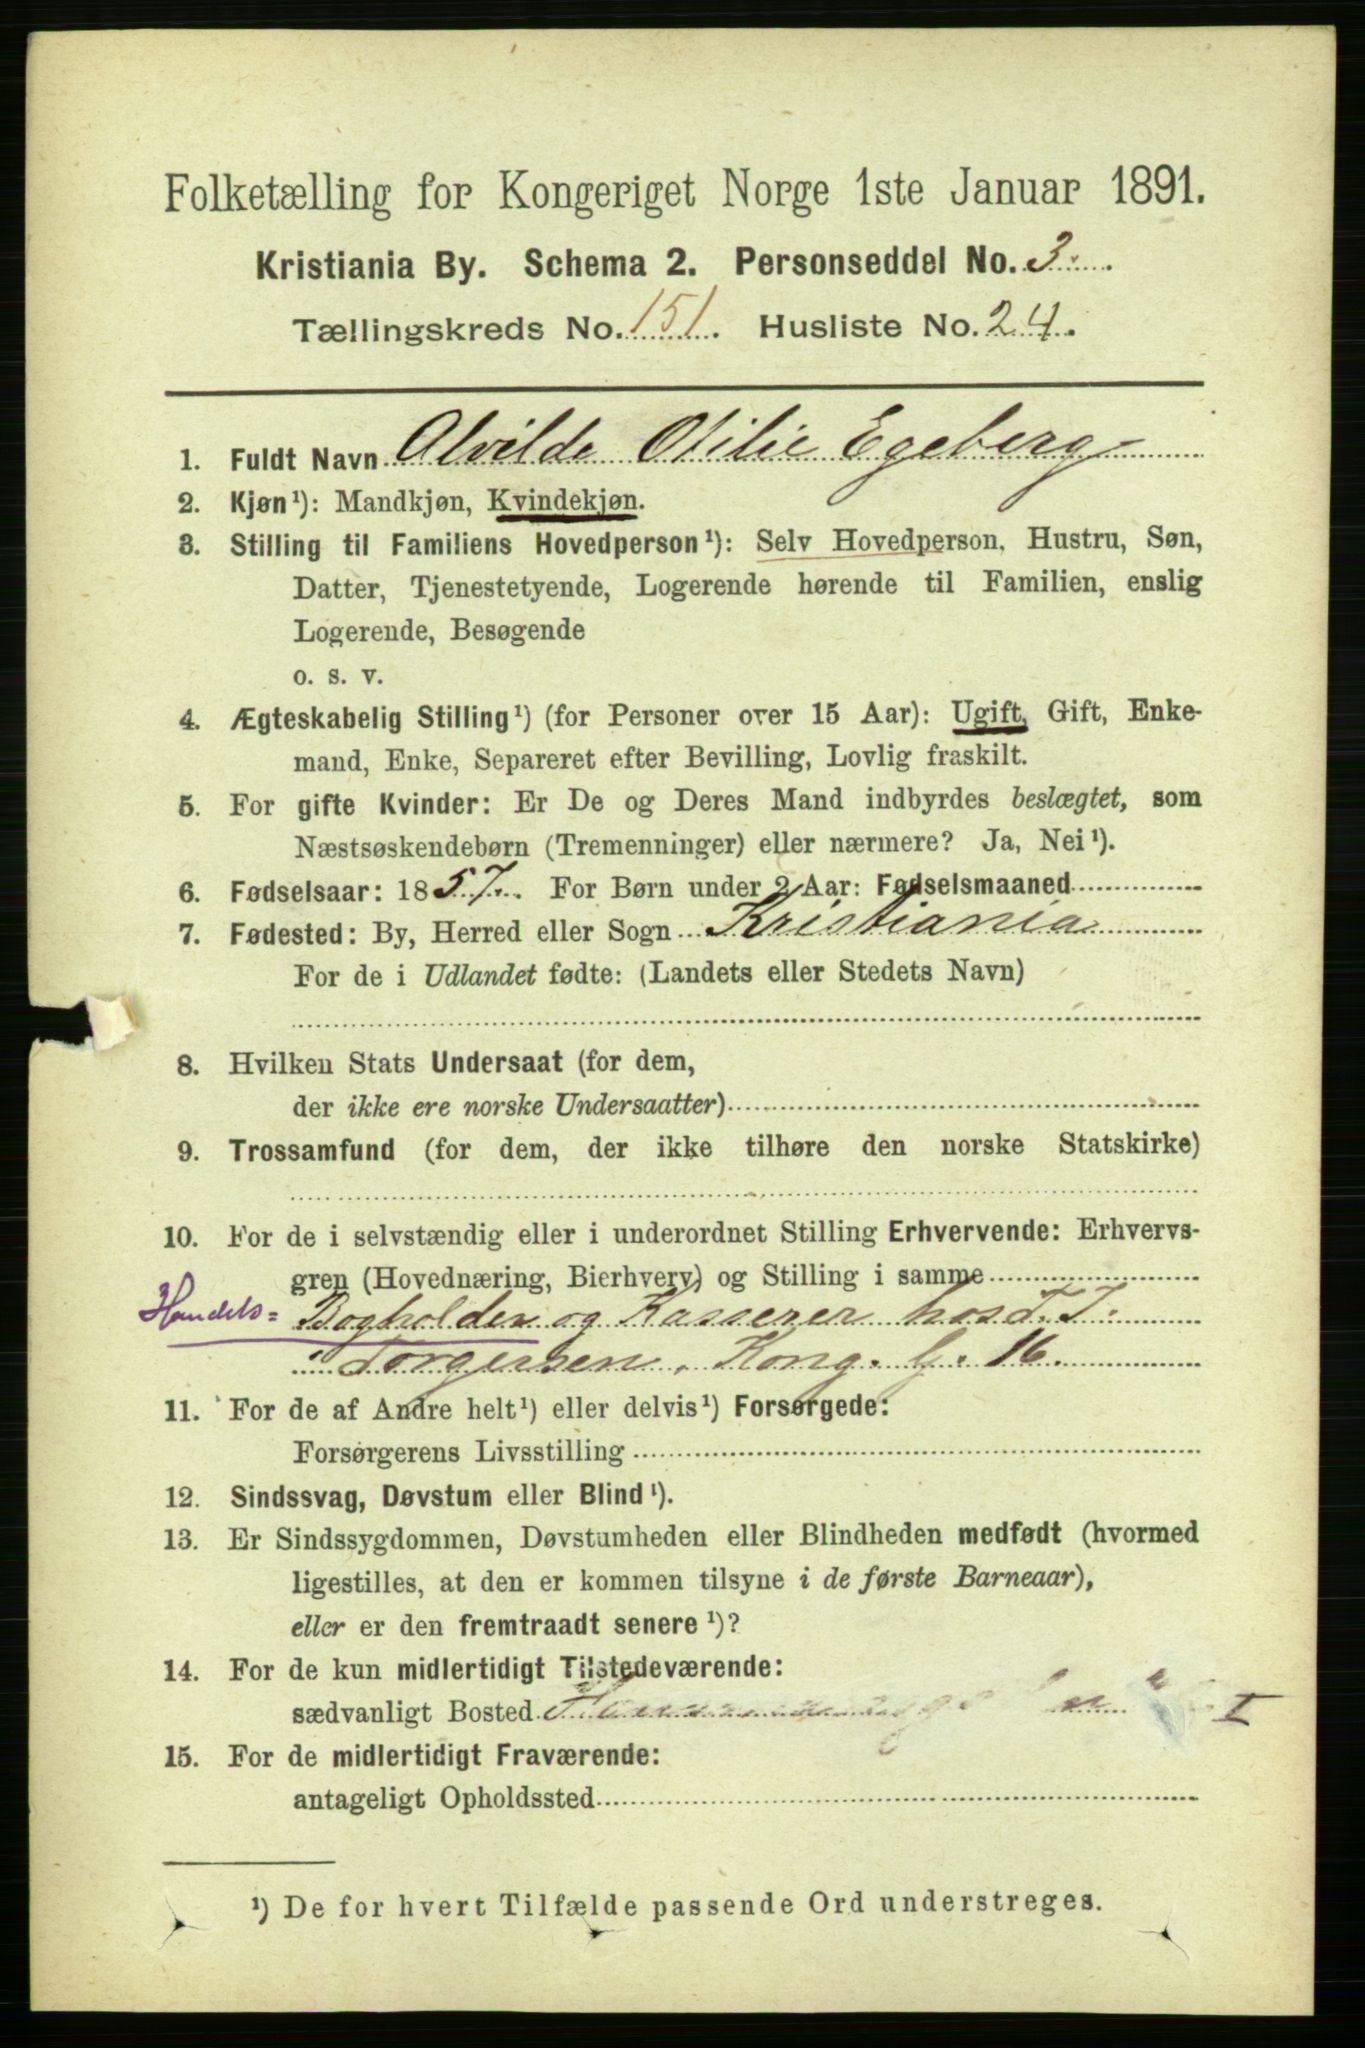 Folketælling for Kongeriget Norge 1ste Januar 1891.
Kristiania By. Schema 2. Personseddel No. 3.
Tællingskreds No. 151. Husliste No. 24.
1. Fuldt Navn Alvilde Otilie Egeberg
2. Kjøn¹): Mandkjøn, Kvindekjøn.
3. Stilling til Familiens Hovedperson¹): Selv Hovedperson, Hustru, Søn,
Datter, Tjenestetyende, Logerende hørende til Familien, enslig
Logerende, Besøgende
o. s. v.
4. Ægteskabelig Stilling¹) (for Personer over 15 Aar): Ugift, Gift, Enke-
mand, Enke, Separeret efter Bevilling, Lovlig fraskilt.
5. For gifte Kvinder: Er De og Deres Mand indbyrdes beslægtet, som
Næstsøskendebørn (Tremenninger) eller nærmere? Ja, Nei¹).
6. Fødselsaar: 1857. For Børn under 2 Aar: Fødselsmaaned
7. Fødested: By, Herred eller Sogn Kristiania
For de i Udlandet fødte: (Landets eller Stedets Navn)
8. Hvilken Stats Undersaat (for dem,
der ikke ere norske Undersaatter)
9. Trossamfund (for dem, der ikke tilhøre den norske Statskirke)
10. For de i selvstændig eller i underordnet Stilling Erhvervende: Erhvervs-
gren (Hovednæring, Bierhverv) og Stilling i samme
Handels= Bogholder og Kasserer hos T. J.
Torgersen, Kong. G. 16.
11. For de af Andre helt¹) eller delvis¹) Forsørgede:
Forsørgerens Livsstilling
12. Sindssvag, Døvstum eller Blind¹).
13. Er Sindssygdommen, Døvstumheden eller Blindheden medfødt (hvormed
ligestilles, at den er kommen tilsyne i de første Barneaar),
eller er den fremtraadt senere¹)?
14. For de kun midlertidigt Tilstedeværende:
sædvanligt Bosted
15. For de midlertidigt Fraværende:
antageligt Opholdssted
¹) De for hvert Tilfælde passende Ord understreges.